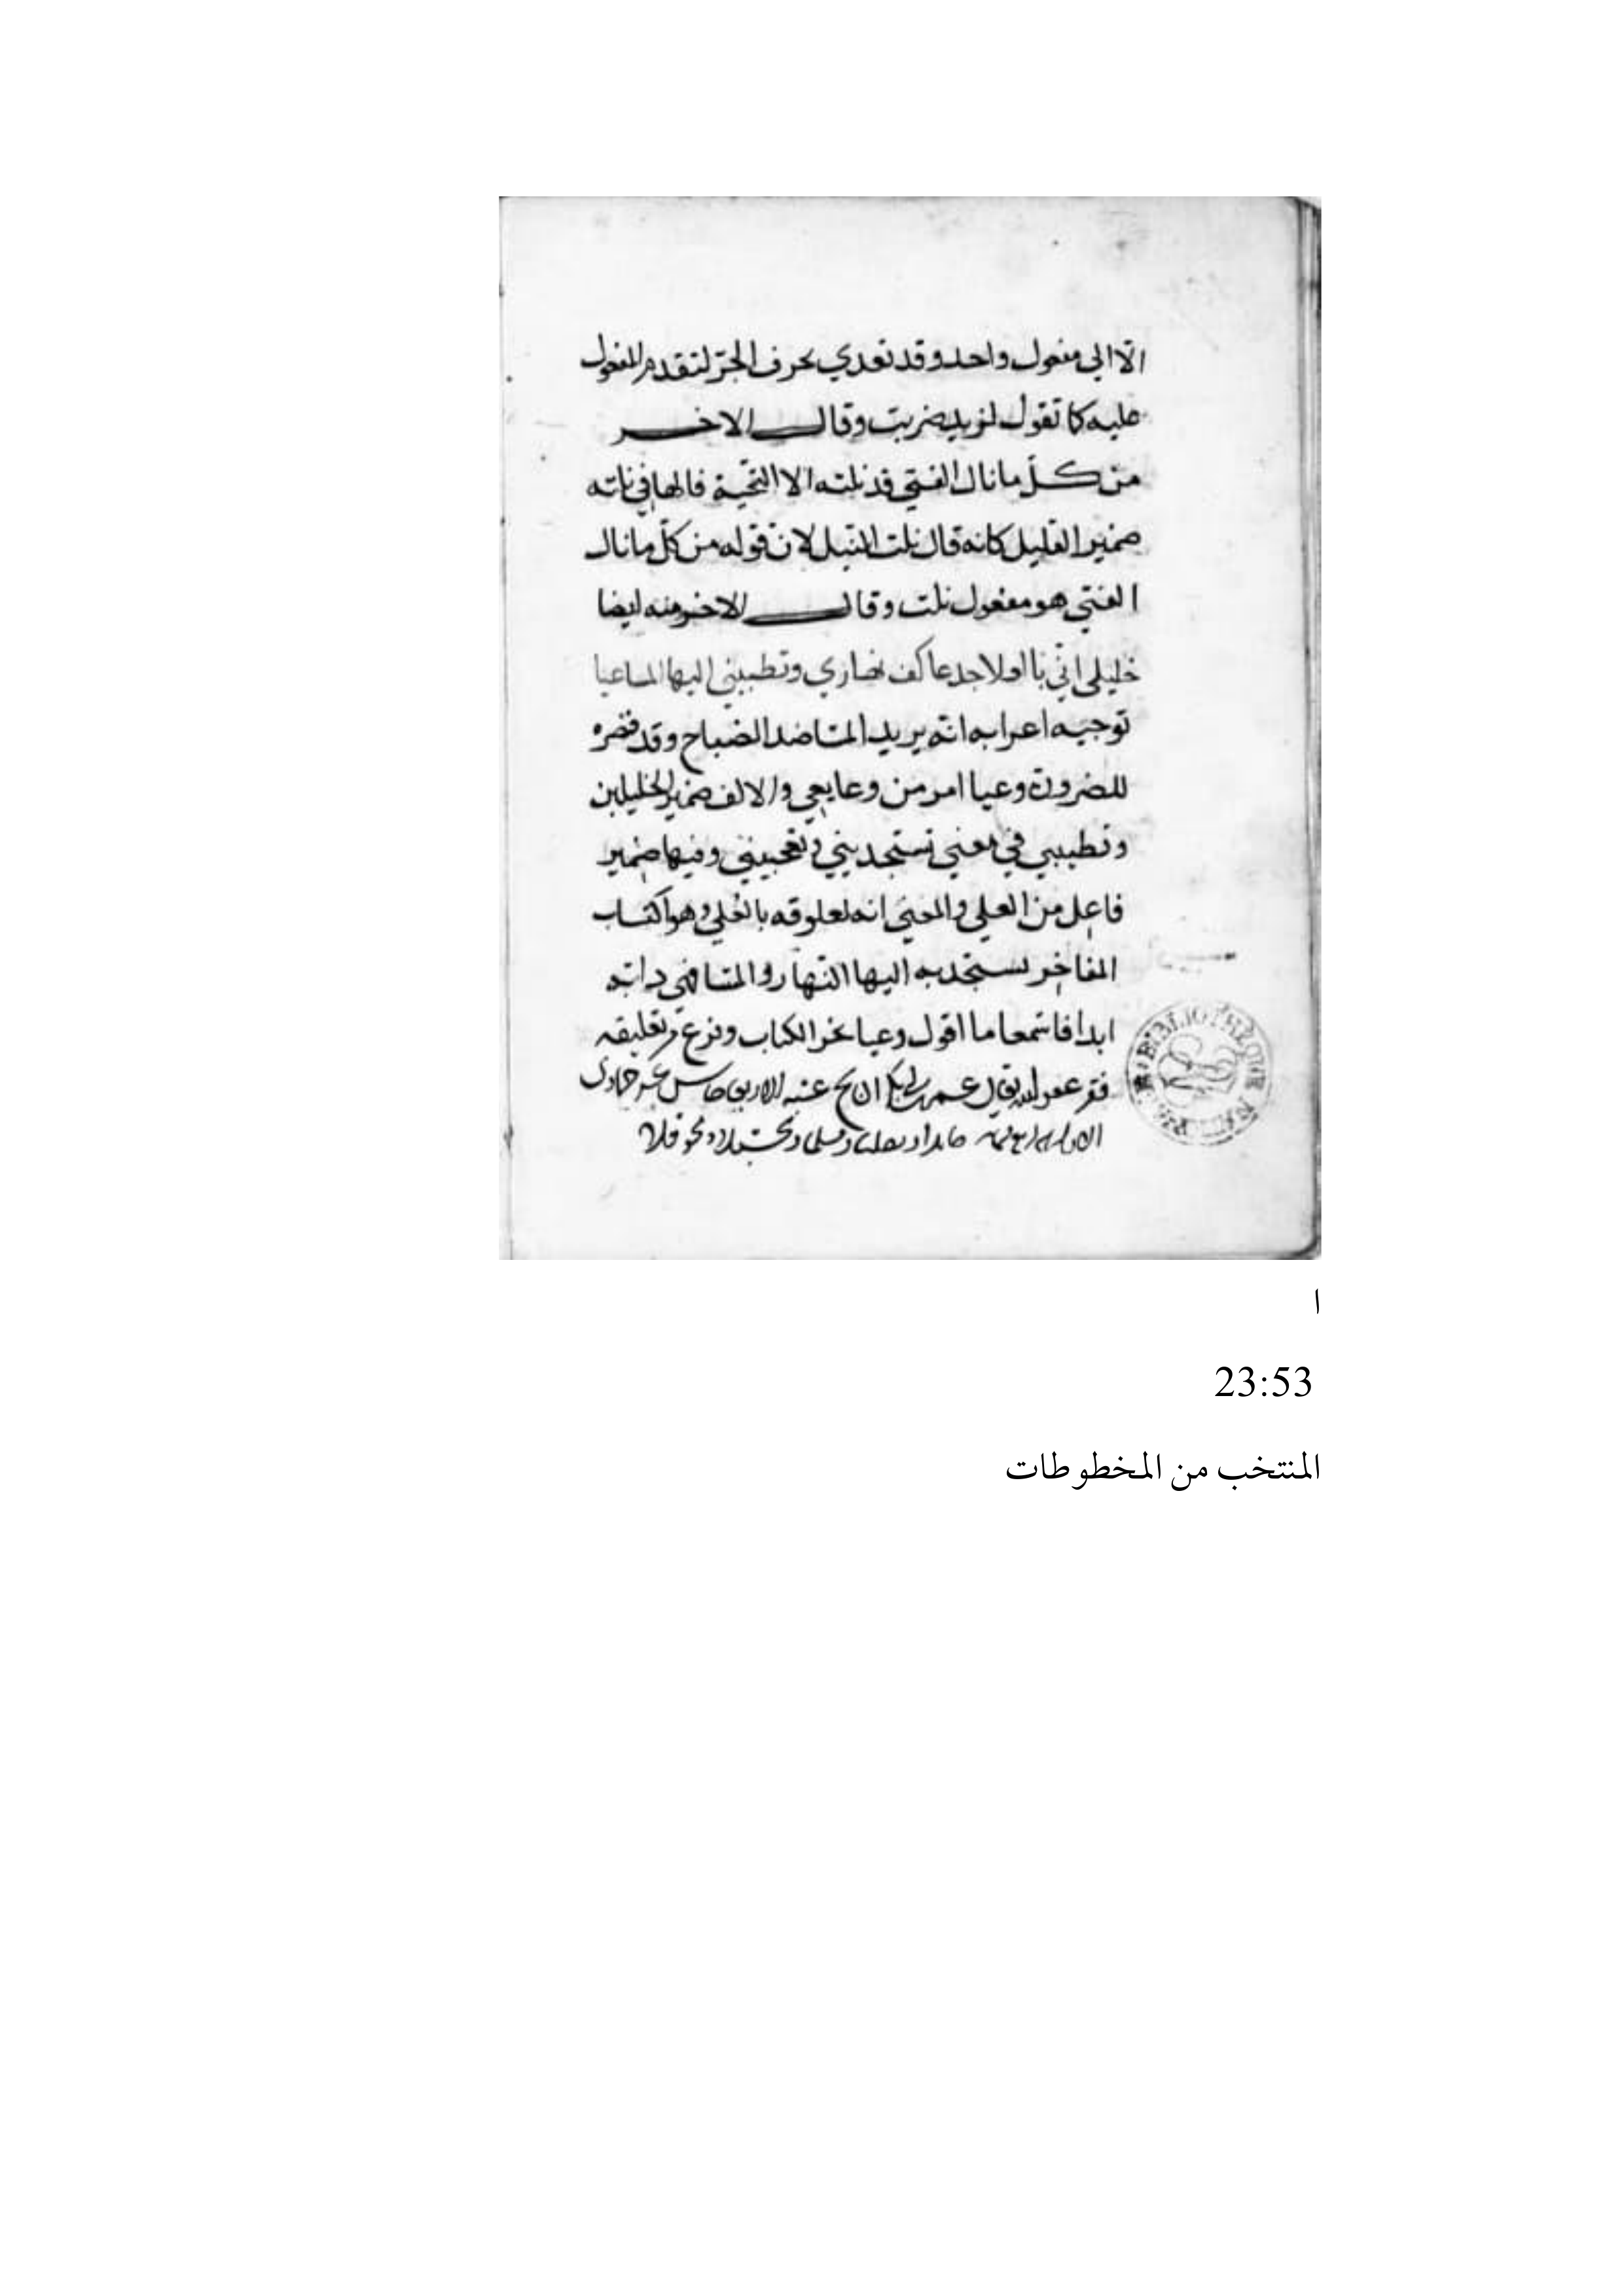 الا الى مفعول واحد وقد تعدي بحرف الجر لتقدم المفعول
عليه كما تقول لزيد ضربت وقال الاخر
من كل ما نال الفتى قد نلته الا التحية فالها في نلته
ضمير القليل كانه قال نلت النيل لان قوله من كل ما نال
الفتي هو مفعول نلت وقال الاخر منه ايضا
خليلي اني نهاري وتطبيني اليها المساعيا
توجيه اعرابه انه يريد المسا ضد الصباح وقد قصره
للضرورة وعيا امر من وعا يعي والالف ضمير الخليلين
وتطبيبي في معني تستجديني وتعجبيني وفيها ضمير
فاعل من العلي والمعني انه لعلوقه بالعلي وهو اكتساب
المفاخر تستجد به اليها النهار والمسا في دابه
ابدا فاسمعا ما اقول وعيا نجز الكتاب وفرغ من تعليقه
فقير عفو الله تعالى عمر بن
BIBLIOTHEQUE
ا
23:53
المنتخب من المخطوطات